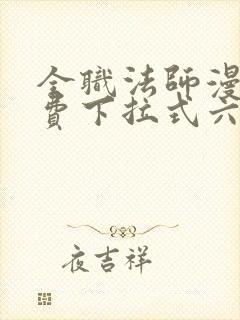 全職法師漫
費下拉式六
夜吉祥